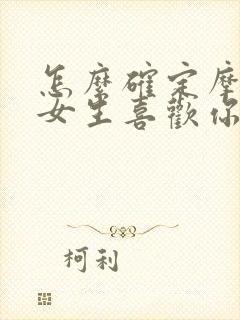 怎麽確定摩
女生喜歡你
柯利